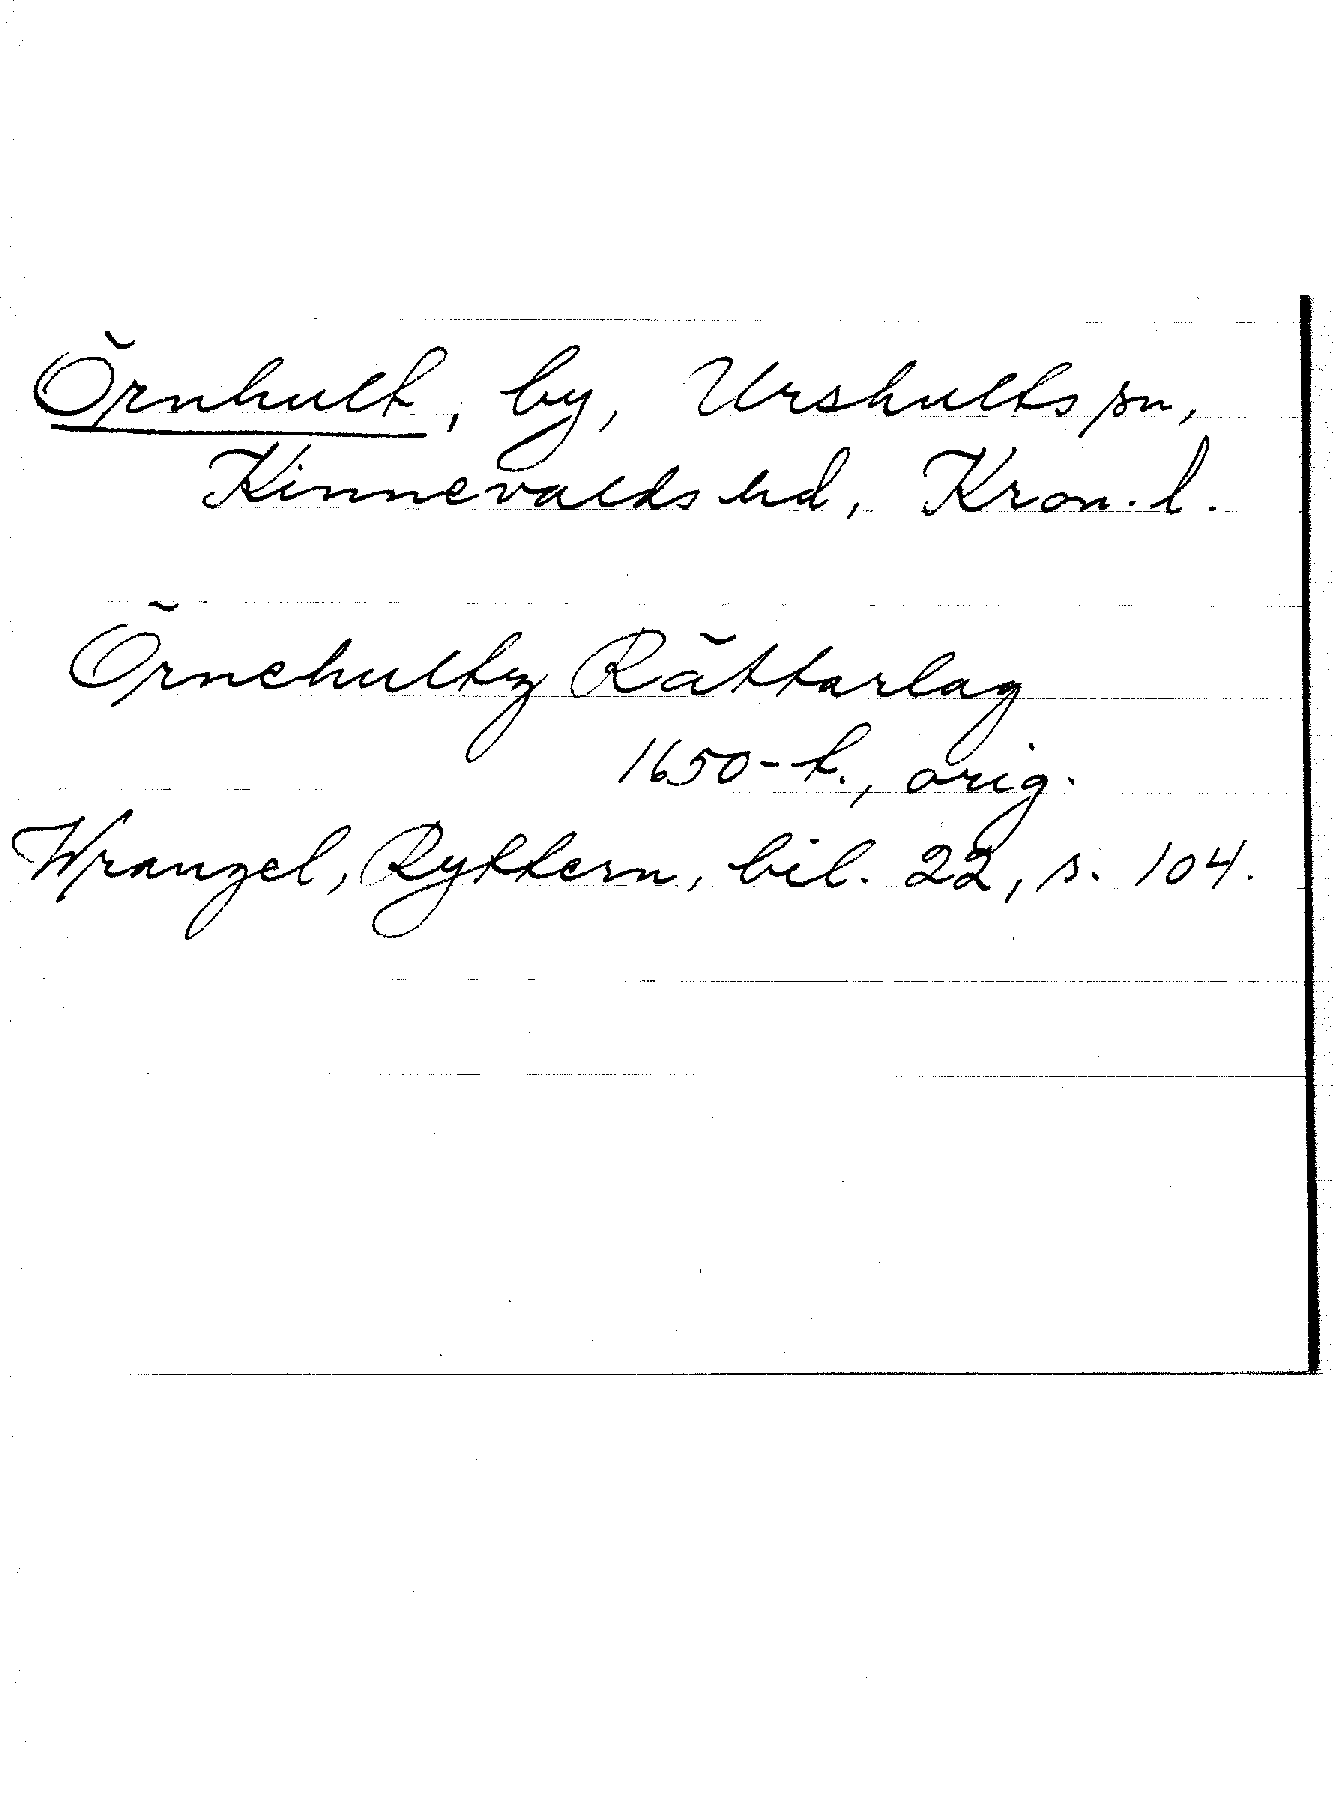 Örnhult, by, Urshults sn,
Kinnevalds hd, Kron. l.
Örnehultz Rättarlag
1650-t., orig.
Wrangel, Ryttern, bil. 22, s. 104.